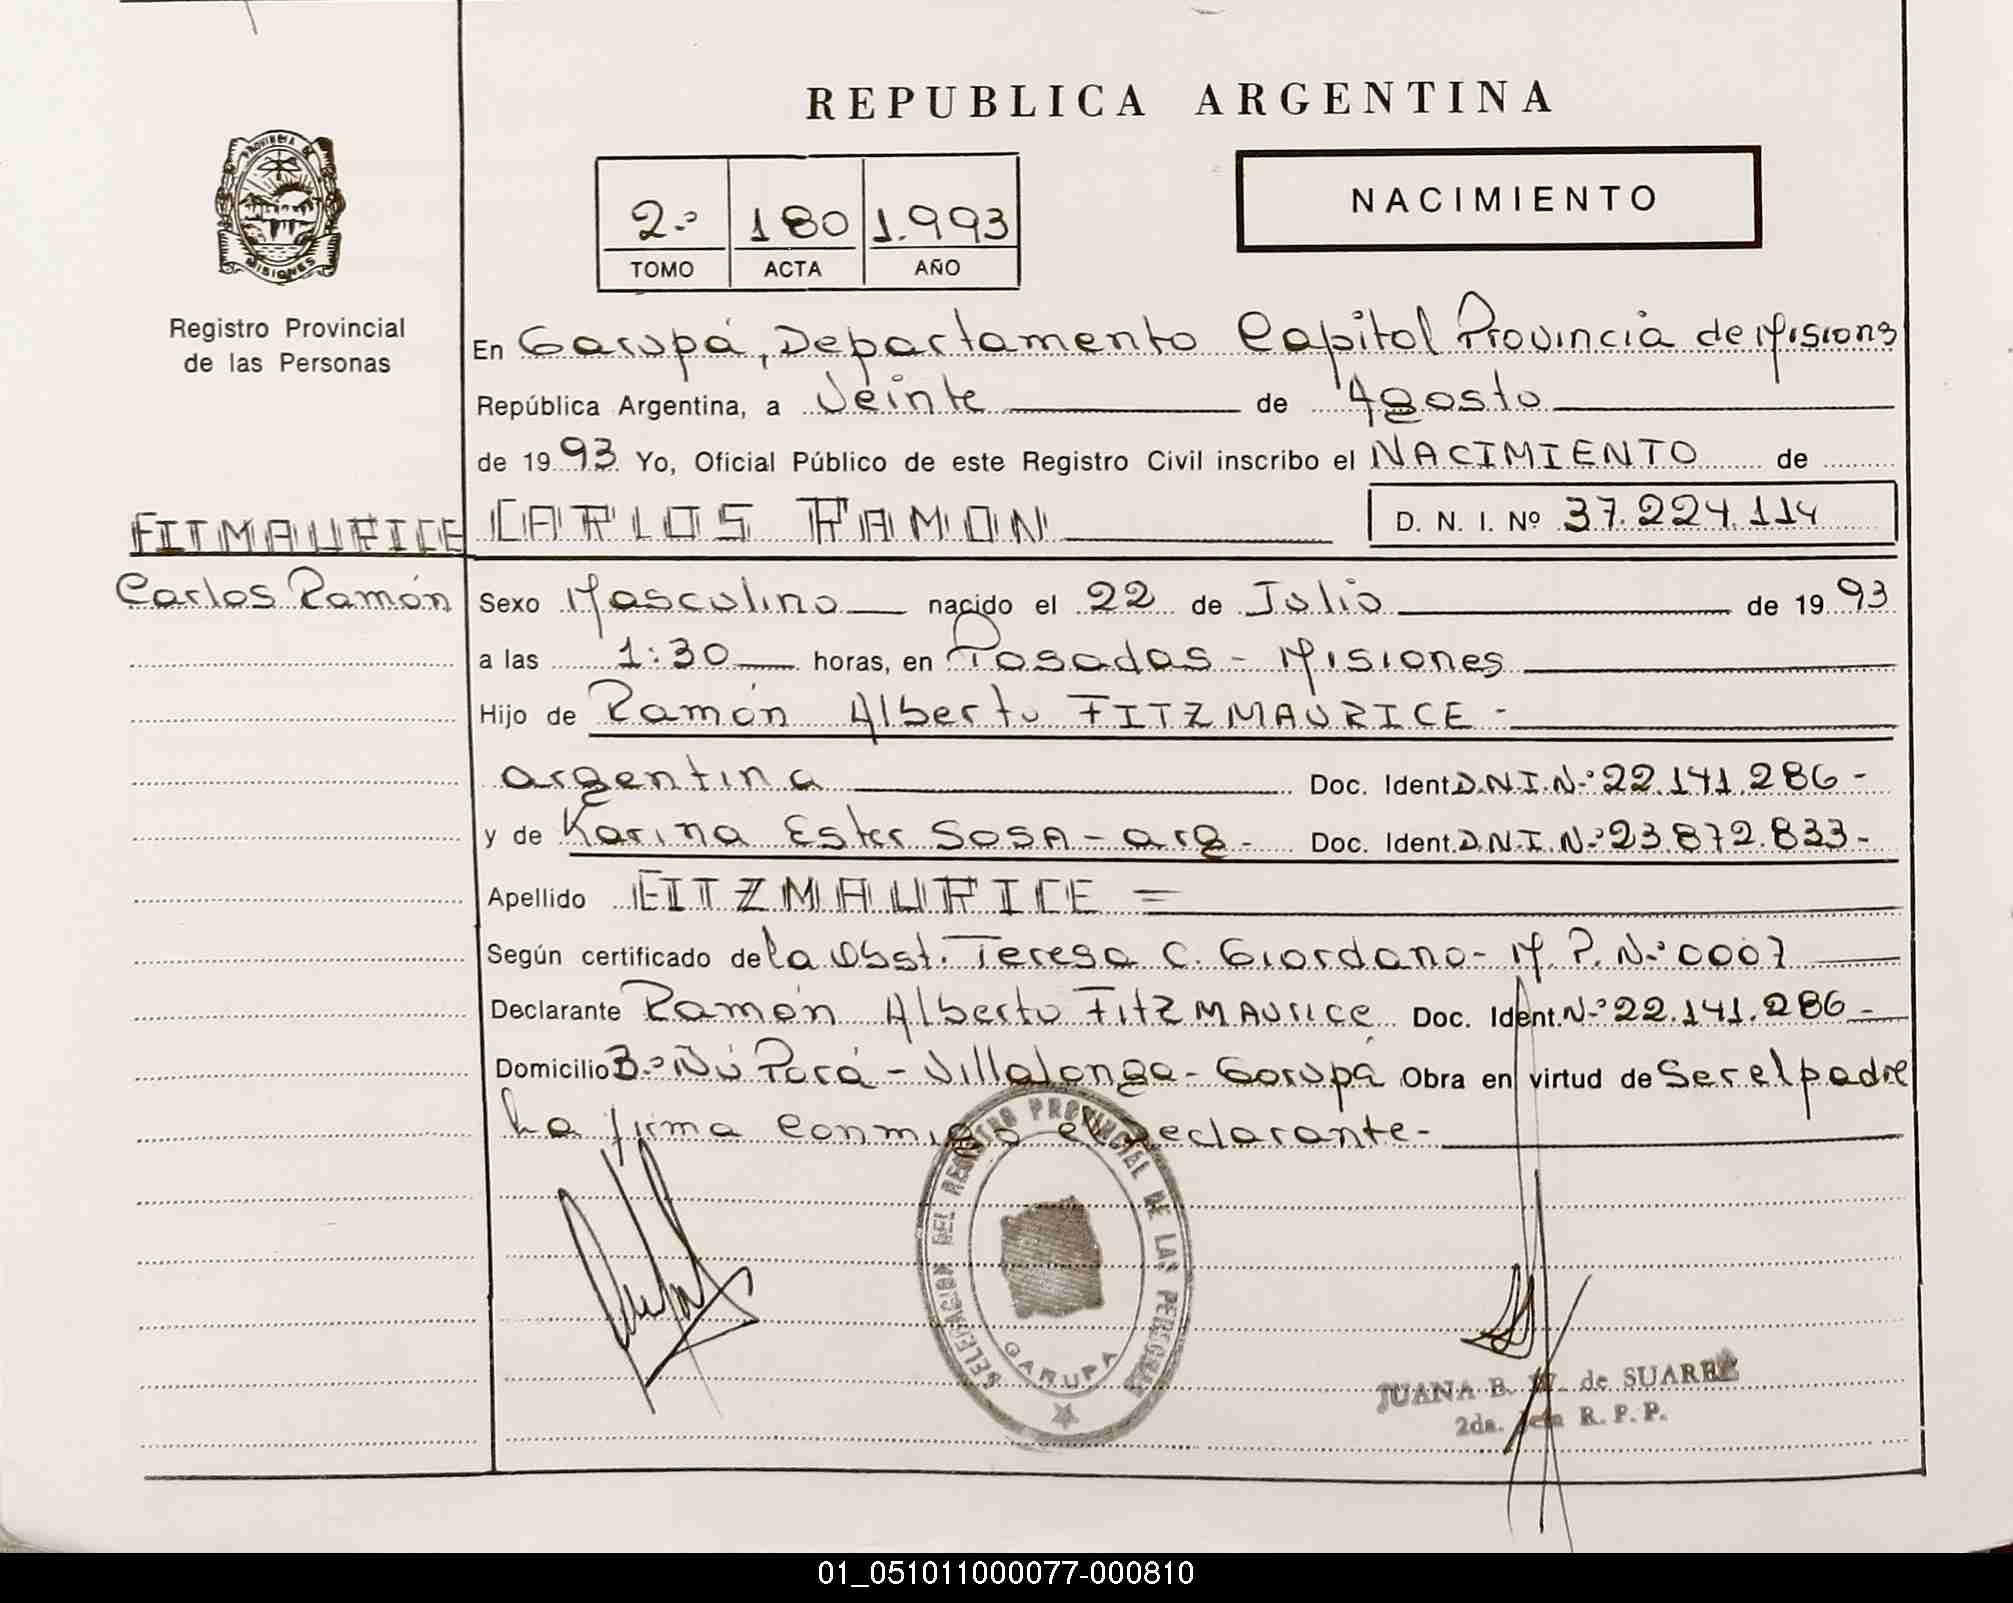 REPUBLICA ARGENTINA
PROVINCIA DE
MISIONES
Registro Provincial
de las Personas
2.º 180 1.993
TOMO ACTA AÑO
NACIMIENTO
En Garupá, Departamento Capital Provincia de Misiones
República Argentina, a Veinte de Agosto
de 1993 Yo, Oficial Público de este Registro Civil inscribo el NACIMIENTO de
FITMAURICE CARLOS RAMON D. N. I. Nº 37.224.114
Carlos Ramón
Sexo Masculino nacido el 22 de Julio de 1993
a las 1:30 horas, en Posadas - Misiones
Hijo de Ramón Alberto FITZMAURICE -
argentina Doc. Ident D.N.I.N.º 22.141.286 -
y de Karina Ester SOSA - arg - Doc. Ident. D.N.I.N.º 23.872.833 -
Apellido FITZMAURICE =
Según certificado de la Obst. Teresa C. Giordano - M.P. N.º 0007
Declarante Ramón Alberto FITZMAURICE Doc. Ident. N.º 22.141.286 -
Domicilio B.º Ñú Porá - Villalonga - Garupá Obra en virtud de Ser el padre
La firma conmigo el declarante -
DELEGACION DEL REGISTRO PROVINCIAL DE LAS PERSONAS
GARUPA
JUANA B. de SUAREZ
2da. Jefa R. P. P.
01_051011000077-000810